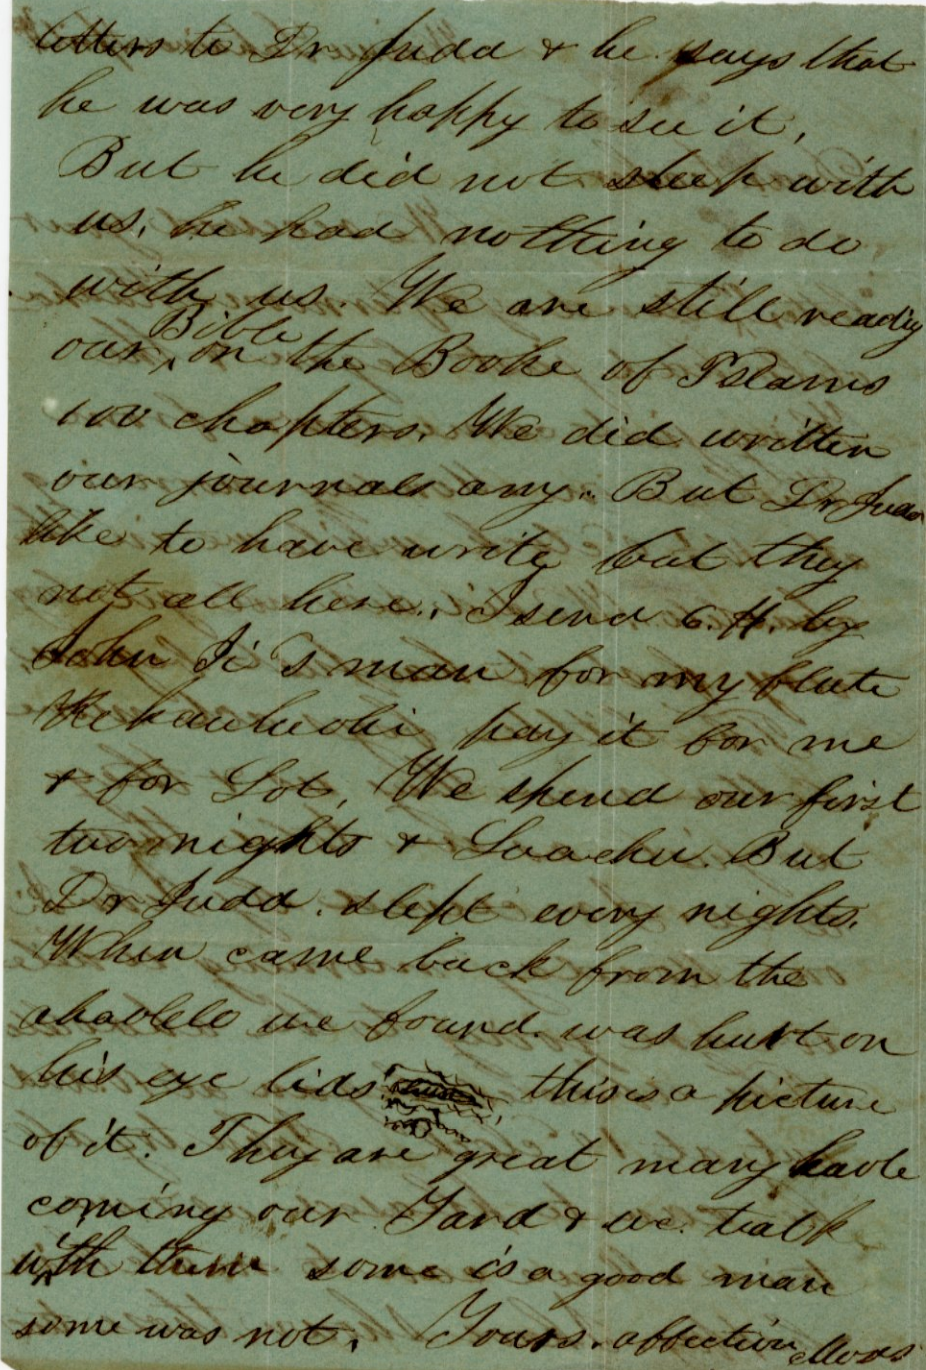 letters to Dr Judd & he says that
he was very happy to see it,
But he did not sleep with
us, he had nothing to do
with us. We are still readig
Bible
our on the Booke of Pslams
100 chapters. We did written
our journals any. But Dr Judd
like to have write but they
not all here. I send 6. H. by
John Ii's man for my flute
Kekauluohi pay it for me
& for Lot, We spend our first
two nights & But
Dr Judd. slept every nights.
When came back from the
ahaolelo we found was hurt on
his eye lids this is a picture
of it. They are great many haole
coming our Yard & we talk
with them some is a good man
some was not. Yours. affection